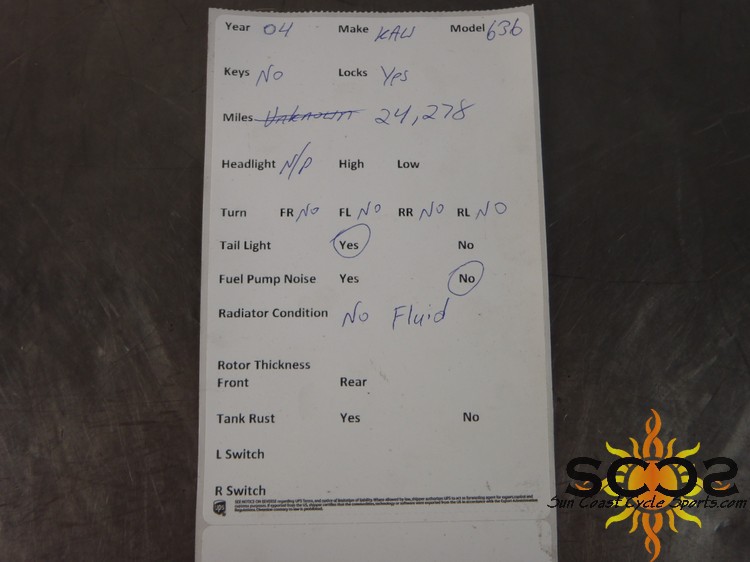 Year 04 Make KAW Model 636
Keys No Locks Yes
Miles Unknown 24,278
Headlight N/P High Low
Turn FR No FL No RR No RL No
Tail Light Yes No
Fuel Pump Noise Yes No
Radiator Condition No Fluid
Rotor Thickness
Front Rear
Tank Rust Yes No
L Switch
R Switch
ups
SCCS
Sun Coast Cycle Sports.com